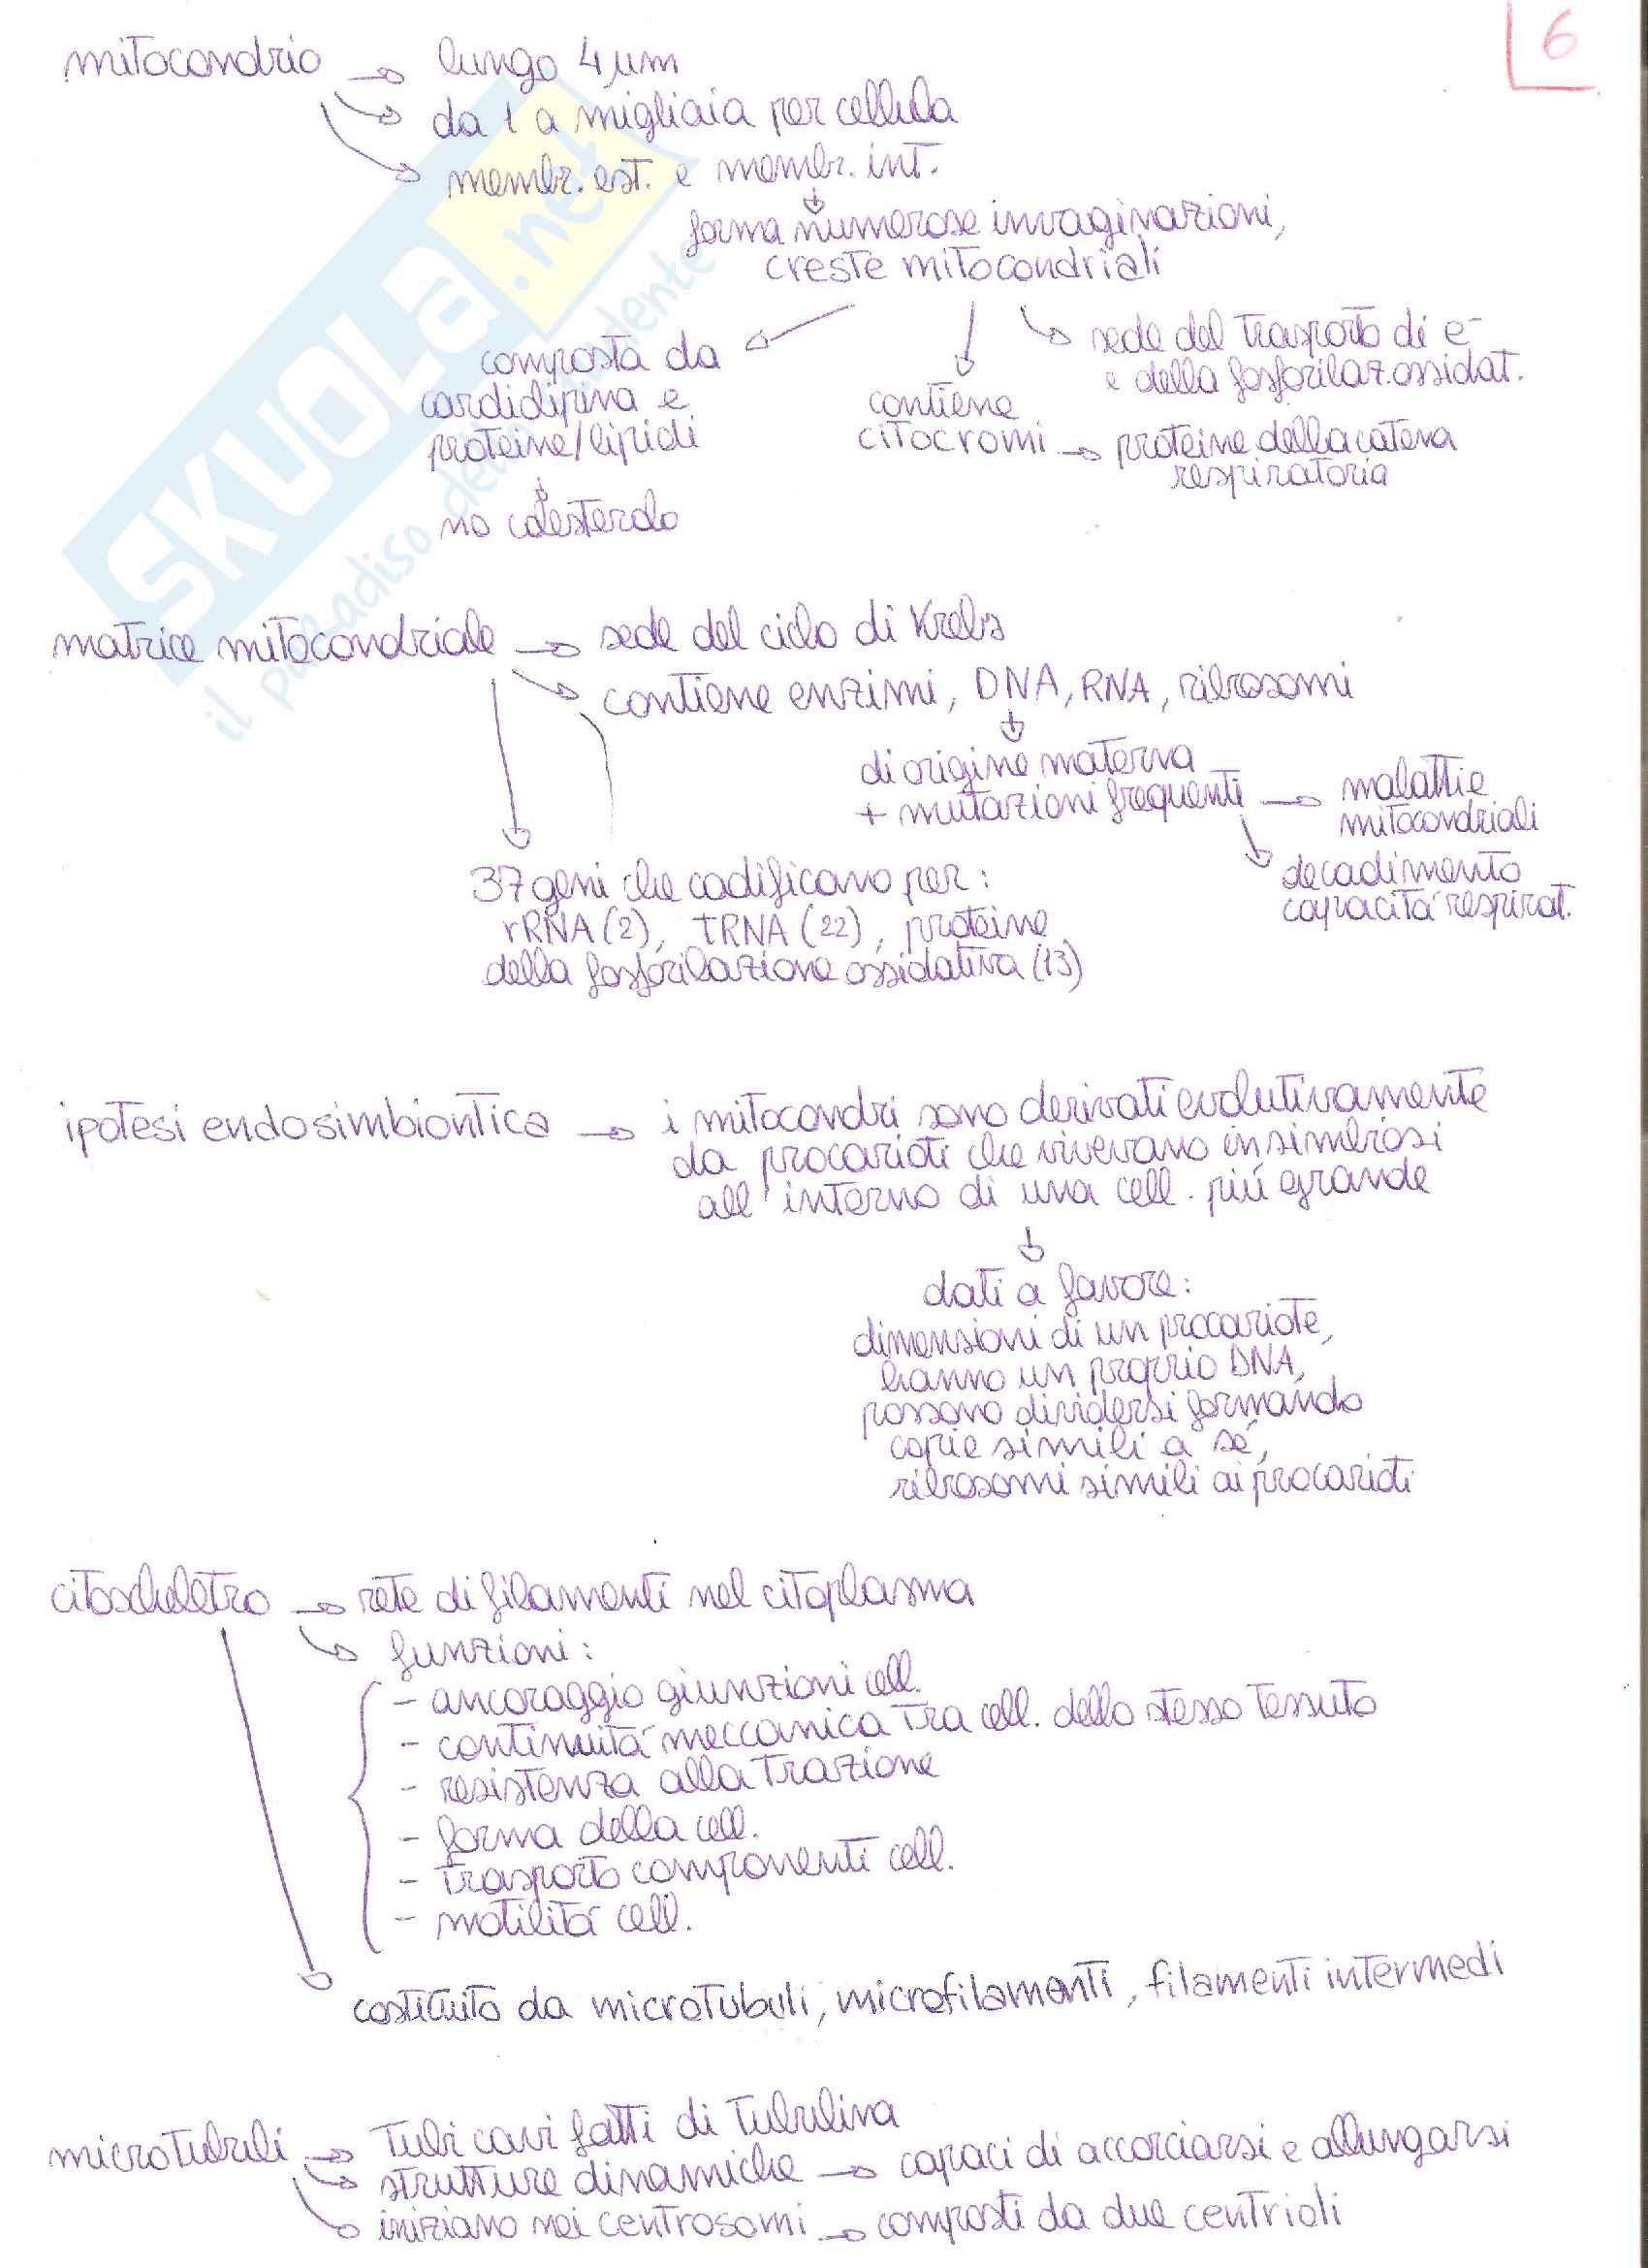 6
mitocondrio → lungo 4 µm
→ da 1 a migliaia per cellula
→ membr. est. e membr. int.
↓
forma numerose invaginazioni,
creste mitocondriali
composta da
cardiolipina e
proteine/lipidi
↓
no colesterolo
contiene
citocromi → proteine della catena
respiratoria
sede del trasporto di e⁻
e della fosforilaz. ossidat.
SKUOLA.net
il paradiso dello studente
matrice mitocondriale → sede del ciclo di Krebs
→ contiene enzimi, DNA, RNA, ribosomi
↓
di origine materna
+ mutazioni frequenti → malattie
mitocondriali
decadimento
capacità respirat.
37 geni che codificano per:
rRNA (2), tRNA (22), proteine
della fosforilazione ossidativa (13)
ipotesi endosimbiontica → i mitocondri sono derivati evolutivamente
da procarioti che vivevano in simbiosi
all'interno di una cell. più grande
↓
dati a favore:
dimensioni di un procariote,
hanno un proprio DNA,
possono dividersi formando
copie simili a sé,
ribosomi simili ai procarioti
citoscheletro → rete di filamenti nel citoplasma
→ funzioni:
- ancoraggio giunzioni cell.
- continuità meccanica tra cell. dello stesso tessuto
- resistenza alla trazione
- forma della cell.
- trasporto componenti cell.
- motilità cell.
costituito da microtubuli, microfilamenti, filamenti intermedi
microtubuli → tubi cavi fatti di tubulina
→ strutture dinamiche → capaci di accorciarsi e allungarsi
→ iniziano nei centrosomi → composti da due centrioli